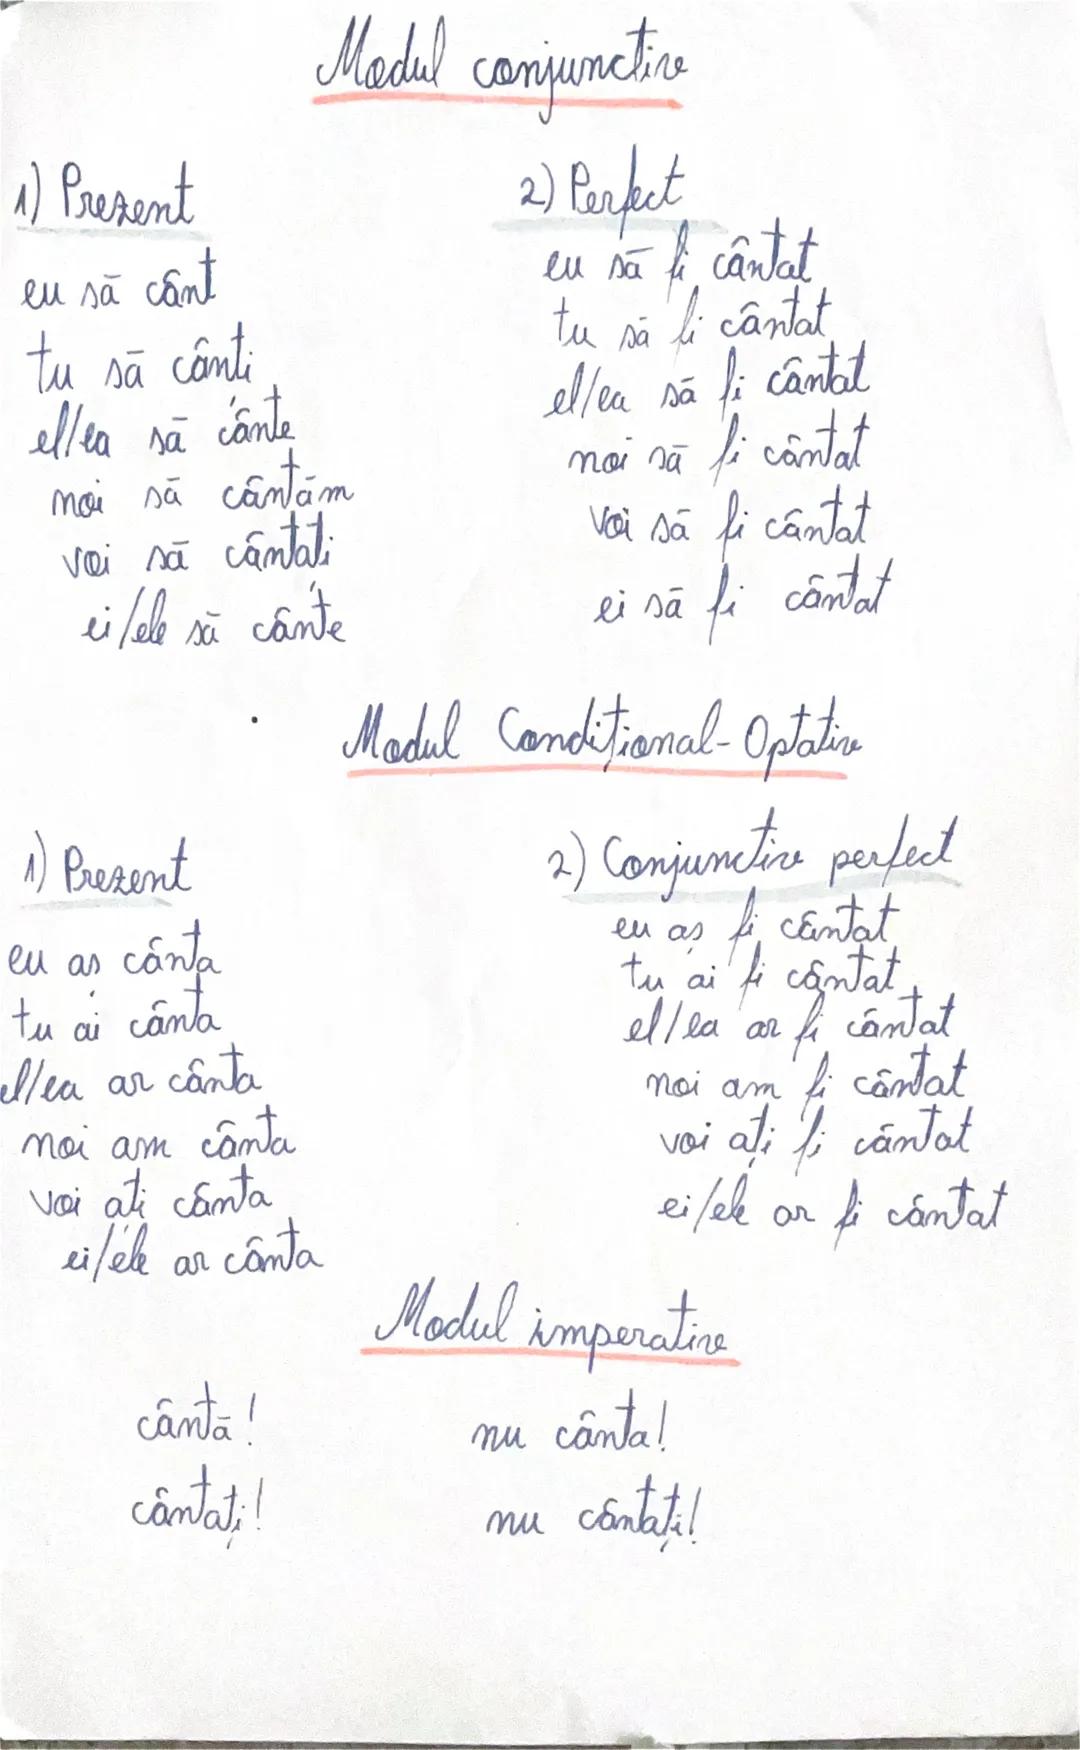 Modul conjunctiv
1) Prezent
eu să cânt
tu să cânti
el/ea să cânte
noi să cântăm
voi să cântati
ei/ele să cânte
2) Perfect
eu să fi cântat
tu să fi cântat
el/ea să fi cântat
noi să fi cântat
voi să fi cântat
ei să fi cântat
Modul Condițional-Optativ
1) Prezent
eu as cânta
tu ai cânta
el/ea ar cânta
noi am cânta
voi ati cânta
ei/ele ar cânta
2) Conjunctiv perfect
eu aș fi cântat
tu ai fi cântat
el/ea ar fi cântat
noi am fi cântat
voi ați fi cântat
ei/ele ar fi cântat
Modul imperativ
cântă! nu cânta!
cântați! nu cântați!